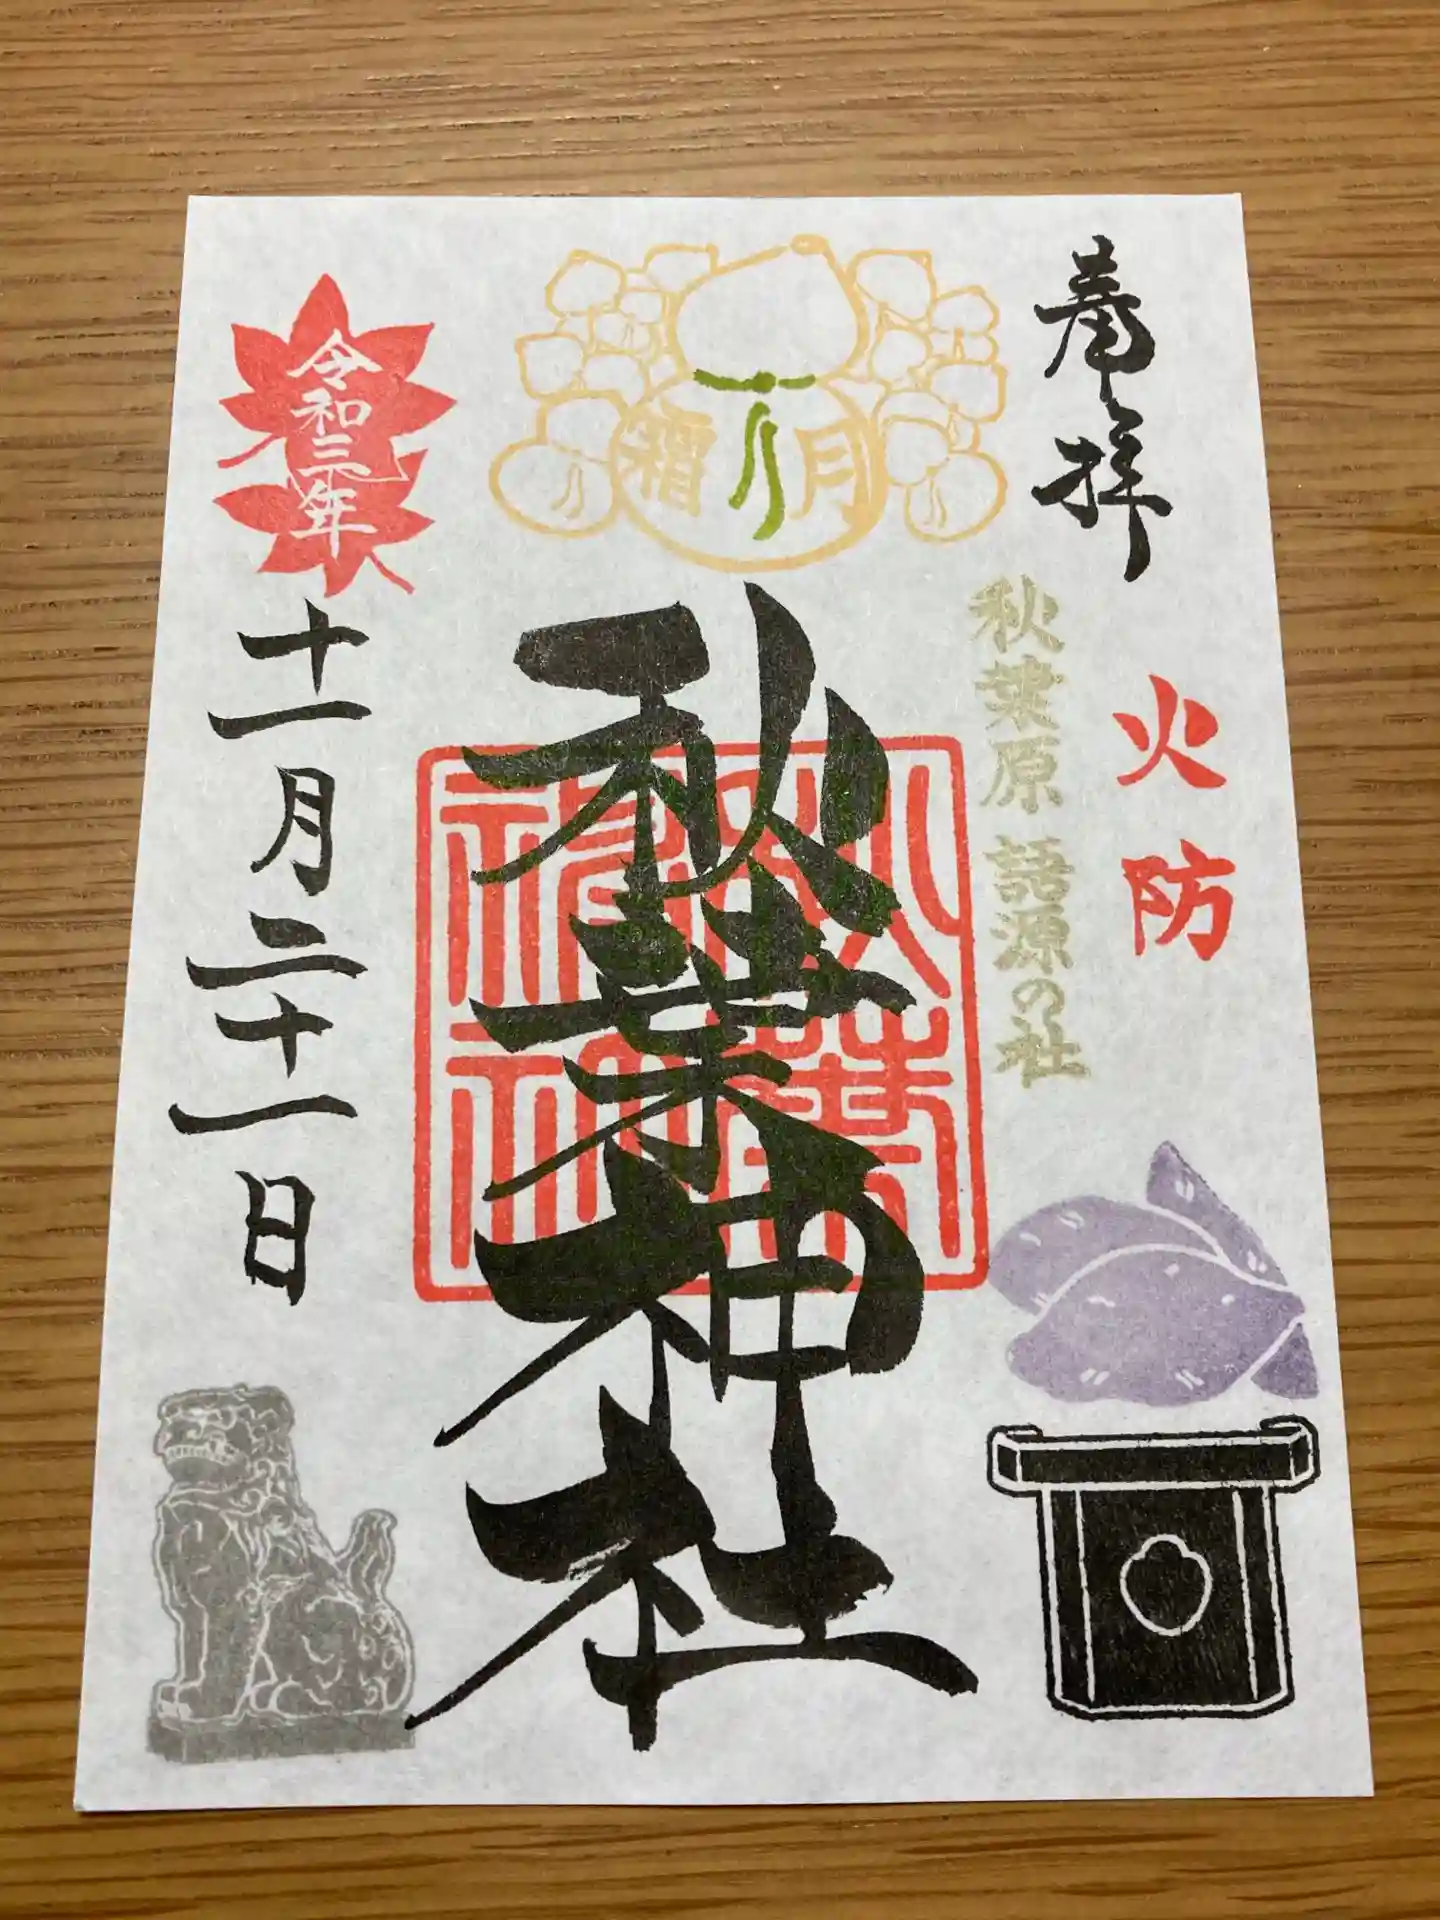 奉拝
火防
秋葉原 語源の社
霜月
秋葉神社
秋葉神社
令和三年
十一月二十一日